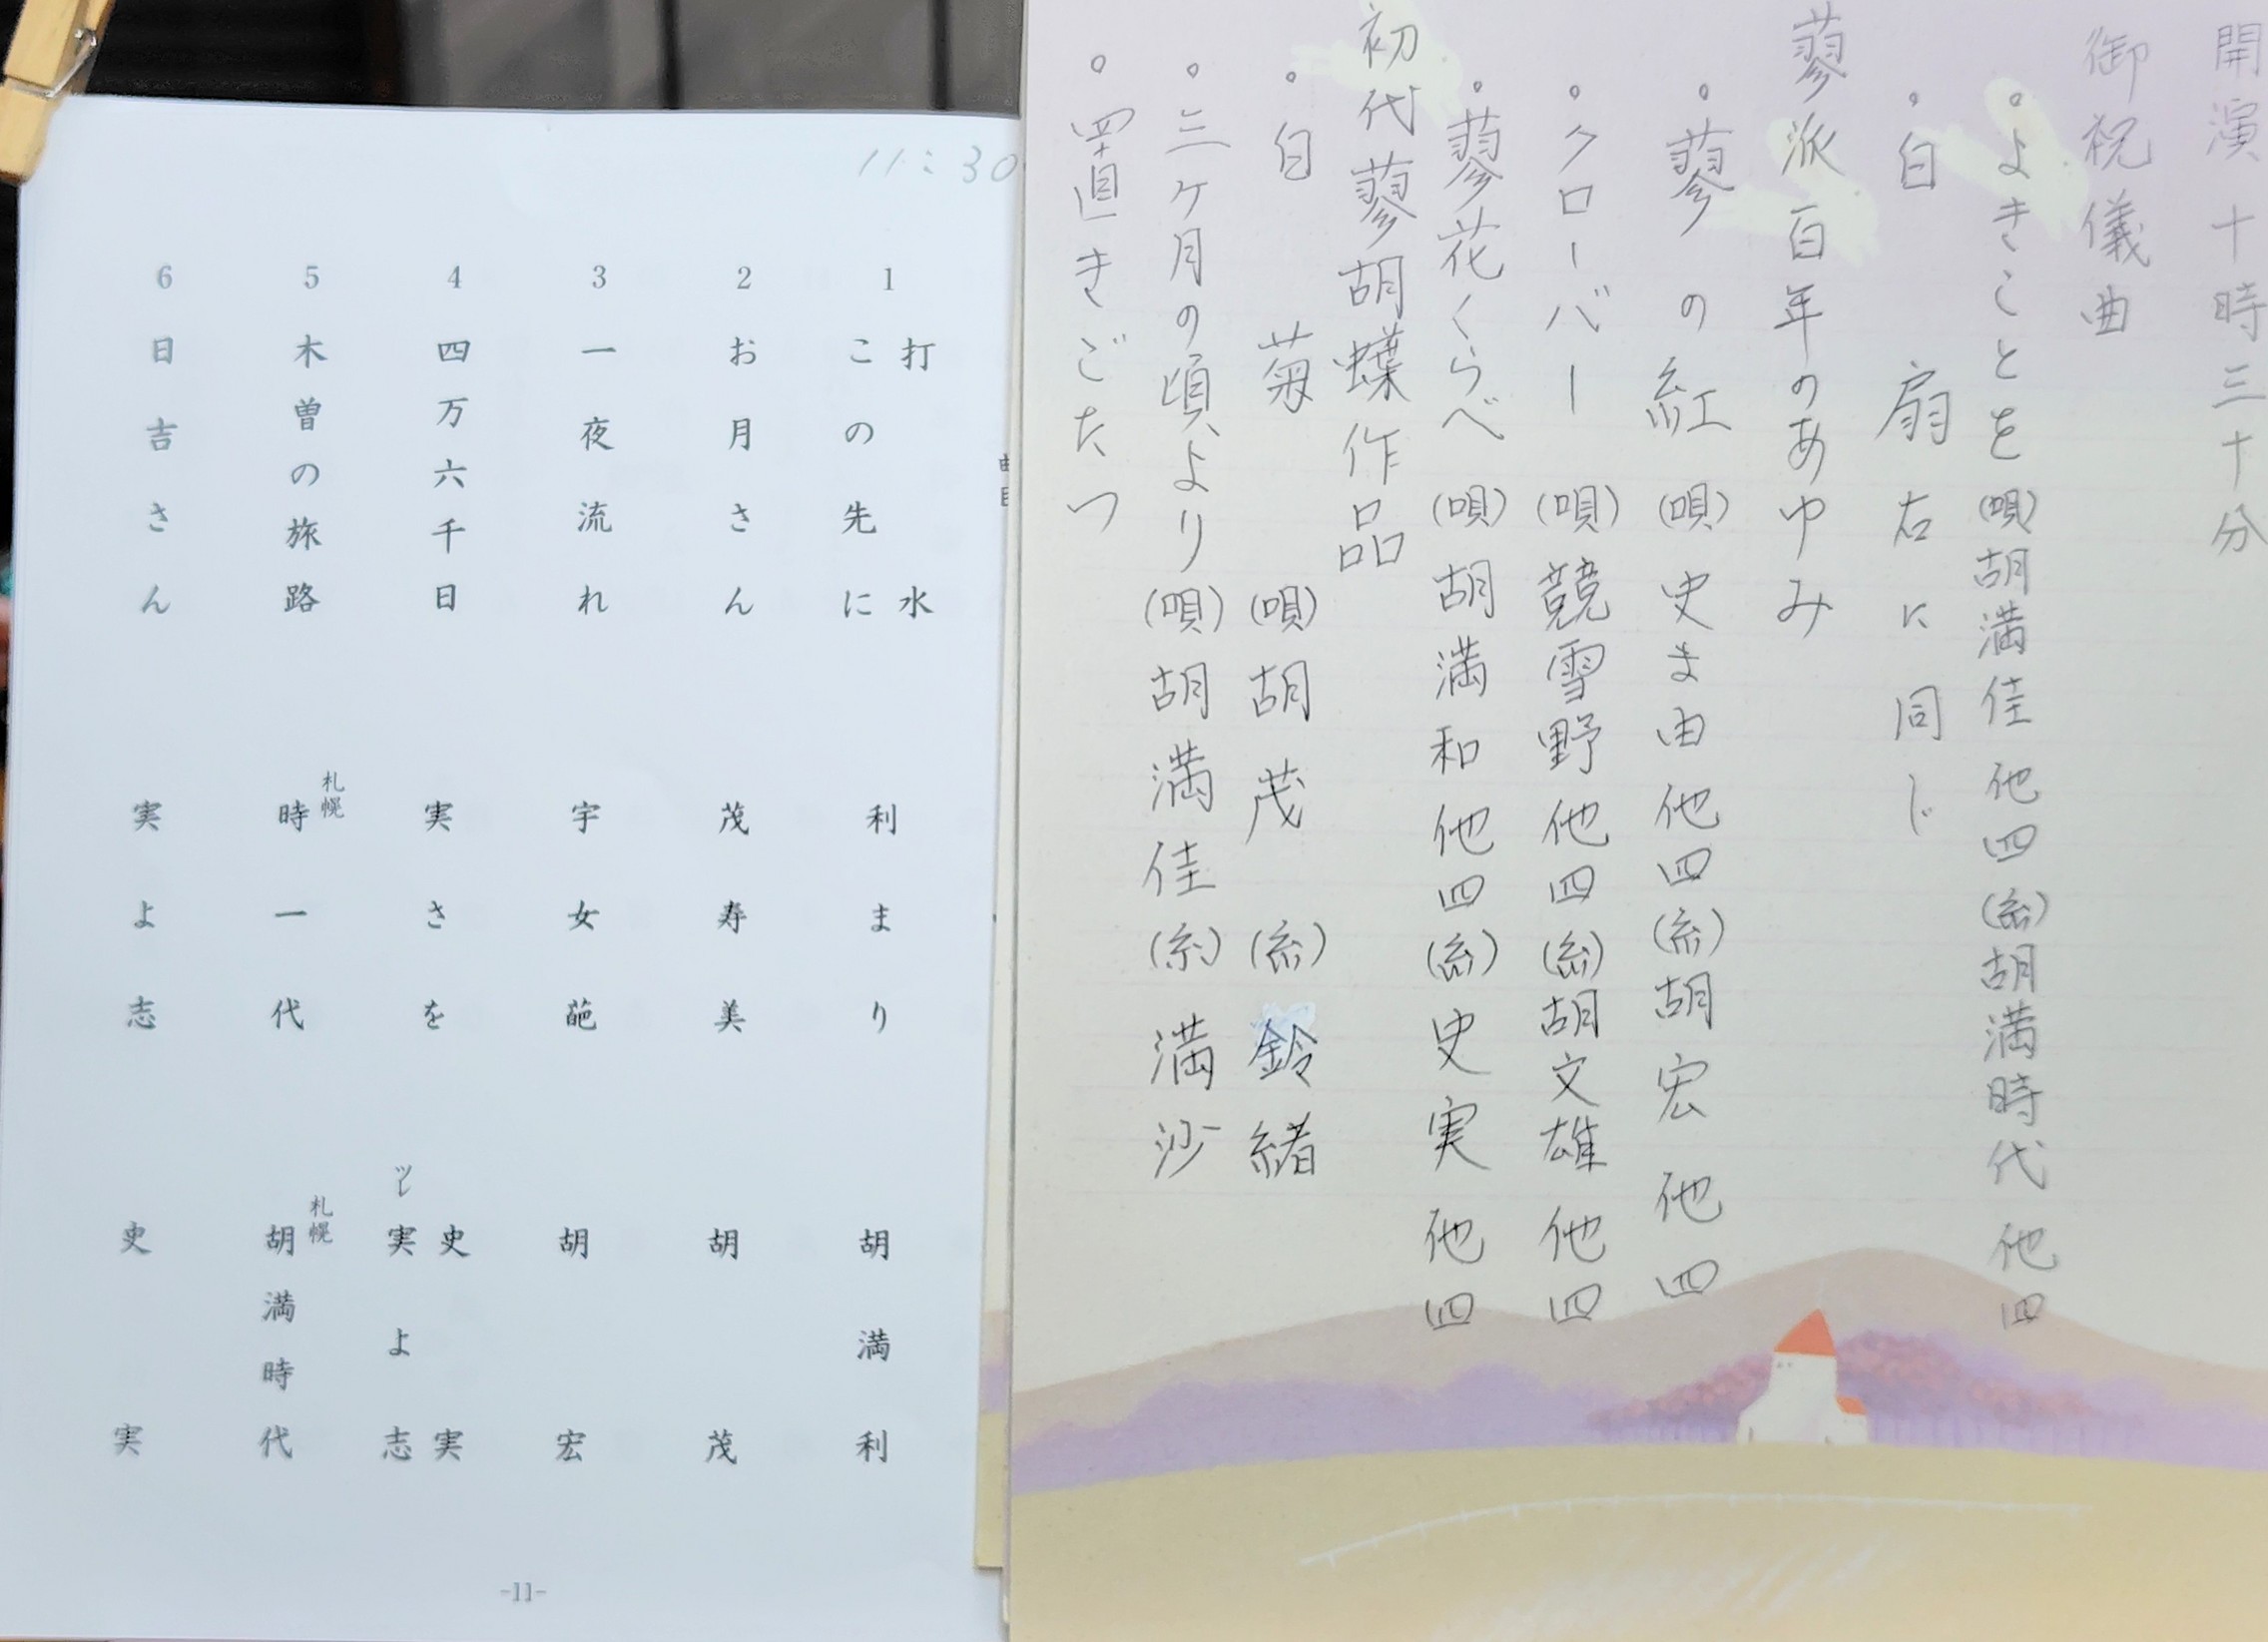 開演 十時三十分
御祝儀曲
。よきことを (唄)胡満佳 他四 (糸)胡満時代 他四
。白扇 右に同じ
蓼派百年のあゆみ
。蓼の紅 (唄)史ま由 他四 (糸)胡宏 他四
。クローバー (唄)競雪野 他四 (糸)胡文雄 他四
。蓼花くらべ (唄)胡満和 他四 (糸)史実 他四
初代蓼胡蝶作品
。白菊 (唄)胡茂 (糸)鈴緒
。三ヶ月の頃より (唄)胡満佳 (糸)満沙
。置きごたつ
11:30
曲目
1 打水
この先に 利まり 胡満利
2 お月さん 茂寿美 胡茂
3 一夜流れ 宇女葩 胡宏
4 四万六千日 実さを 史実
ツレ 実よ志
5 木曽の旅路 札幌 時一代 札幌 胡満時代
6 日吉さん 実よ志 史実
-11-